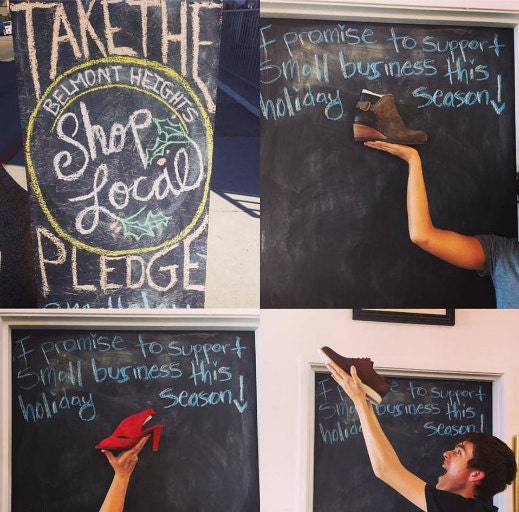 TAKE THE
BELMONT HEIGHTS
Shop
Local
PLEDGE
I promise to support
Small business this
holiday season!
I promise to support
Small business this
holiday season!
I promise to support
Small business this
holiday season!